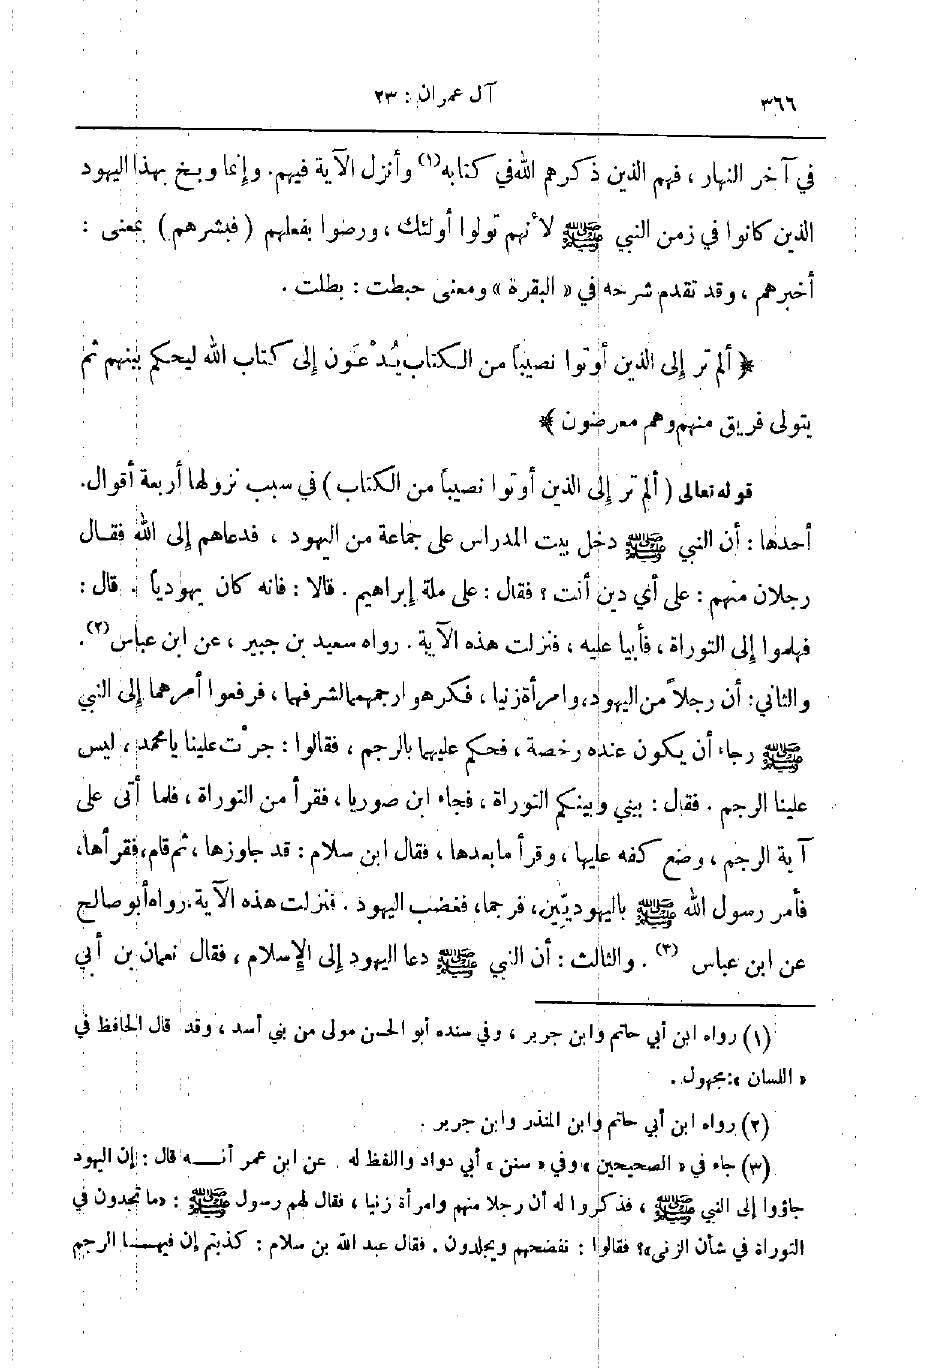 ٣٦٦
آل عمران : ٢٣
في آخر النهار ، فهم الذين ذكرهم الله في كتابه (١) وأنزل الآية فيهم. وإنما وبخ بهذا اليهود
الذين كانوا في زمن النبي ﷺ لأنهم تولوا أولئك ، ورضوا بفعلهم ( فبشرهم ) بمعنى :
أخبرهم ، وقد تقدم شرحه في « البقرة » ومعنى حبطت : بطلت .
﴿ ألم تر إلى الذين أوتوا نصيباً من الكتاب يُدْعَون إلى كتاب الله ليحكم بينهم ثم
يتولى فريق منهم وهم معرضون ﴾
قوله تعالى ( ألم تر إلى الذين أوتوا نصيباً من الكتاب ) في سبب نزولها أربعة أقوال.
أحدها : أن النبي ﷺ دخل بيت المدراس على جماعة من اليهود ، فدعاهم إلى الله فقال
رجلان منهم : على أي دين أنت ؟ فقال : على ملة إبراهيم . قالا : فانه كان يهودياً . قال :
فهلموا إلى التوراة ، فأبيا عليه ، فنزلت هذه الآية . رواه سعيد بن جبير ، عن ابن عباس (٢).
والثاني: أن رجلاً من اليهود، وامرأة زنيا ، فكرهوا رجمهما لشرفهما ، فرفعوا أمرهما إلى النبي
ﷺ رجاء أن يكون عنده رخصة ، فحكم عليهما بالرجم ، فقالوا : جرْت علينا يا محمد ، ليس
علينا الرجم . فقال : بيني وبينكم التوراة ، فجاء ابن صوريا ، فقرأ من التوراة ، فلما أتى على
آية الرجم ، وضع كفه عليها ، وقرأ ما بعدها ، فقال ابن سلام : قد جاوزها ، ثم قام، فقرأها،
فأمر رسول الله ﷺ باليهوديّين، فرجما، فغضب اليهود . فنزلت هذه الآية. رواه أبو صالح
عن ابن عباس (٣) . والثالث : أن النبي ﷺ دعا اليهود إلى الإسلام ، فقال نعمان بن أبي
(١) رواه ابن أبي حاتم وابن جرير ، وفي سنده أبو الحسن مولى من بني أسد ، وقد قال الحافظ في
« اللسان »: مجهول .
(٢) رواه ابن أبي حاتم وابن المنذر وابن جرير .
(٣) جاء في « الصحيحين » وفي « سنن » أبي دواد واللفظ له عن ابن عمر أنه قال : إن اليهود
جاؤوا إلى النبي ﷺ ، فذكروا له أن رجلا منهم وامرأة زنيا ، فقال لهم رسول ﷺ : «ما تجدون في
التوراة في شأن الزنى »؟ فقالوا : نفضحهم ويجلدون . فقال عبد الله بن سلام : كذبتم إن فيها الرجم